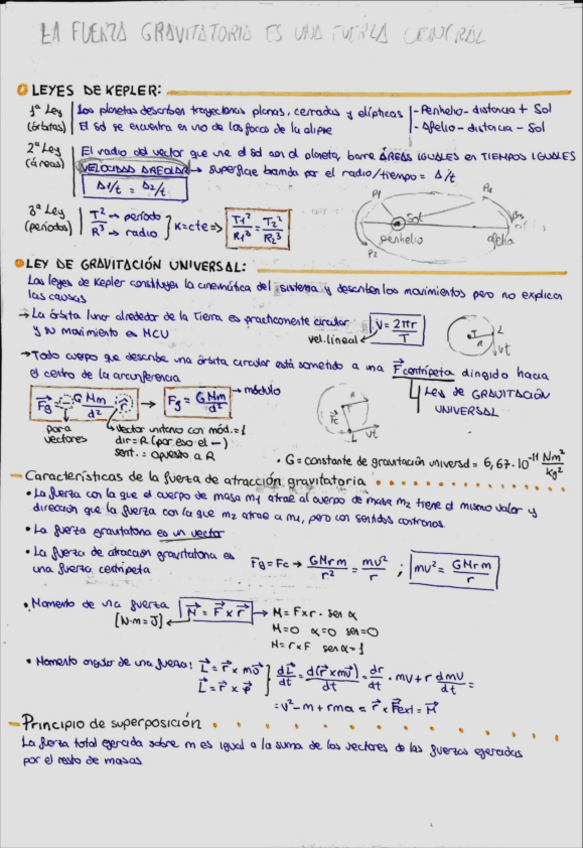 LA FUERZA GRAVITATORIA ES UNA FUERZA CENTRAL
LEYES DE KEPLER:
1ª Ley (órbitas) | Los planetas describen trayectorias planas, cerradas y elípticas | - Perihelio - distancia + Sol
El sol se encuentra en uno de los focos de la elipse | - Afelio - distancia - Sol
2ª Ley (áreas) | El radio del vector que une el sol con el planeta, barre ÁREAS IGUALES en TIEMPOS IGUALES
VELOCIDAD AREOLAR → superficie barrida por el radio/tiempo = Δ/t
Δ1/t = Δ2/t
P1 P2 Sol perihelio afelio
3ª Ley (períodos) | T² → período
R³ → radio } K=cte => T1²/R1³ = T2²/R2³
LEY DE GRAVITACIÓN UNIVERSAL:
Las leyes de Kepler constituyen la cinemática del sistema y describen los movimientos pero no explican
las causas
→ La órbita lunar alrededor de la Tierra es practicamente circular
y su movimiento es MCU
V = 2πr/T
vel. lineal
T L R vt
→ Todo cuerpo que describe una órbita circular está sometido a una F⃗ centrípeta dirigido hacia
el centro de la circunferencia
LEY de GRAVITACIÓN
UNIVERSAL
F⃗g = - G M m/d² r⃗ → Fg = G M m/d² → módulo
para vectores
vector unitario con mód. = 1
dir = R (por eso el -)
sent. = opuesto a R
F⃗c L vt
• G = constante de gravitación universal = 6,67·10⁻¹¹ Nm²/kg²
- Características de la fuerza de atracción gravitatoria
• La fuerza con la que el cuerpo de masa m1 atrae al cuerpo de masa m2 tiene el mismo valor y
dirección que la fuerza con la que m2 atrae a m1, pero con sentidos contrarios.
• La fuerza gravitatoria es un vector
• La fuerza de atracción gravitatoria es
una fuerza centrípeta
Fg = Fc → G M m/r² = mv²/r ; mv² = G M m/r
• Momento de una fuerza M⃗ = F⃗ x r⃗ → M = F x r · sen α
[N·m = J]
M=0 α=0 sen=0
M = r x F sen α = 1
• Momento angular de una fuerza: L⃗ = r⃗ x mv⃗
L⃗ = r⃗ x p⃗
dL⃗/dt = d(r⃗ x mv⃗)/dt = dr/dt · mv + r dmv/dt =
= v² - m + rma = r⃗ x F⃗ext = M⃗
- Principio de superposición
La fuerza total ejercida sobre m es igual a la suma de los vectores de las fuerzas ejercidas
por el resto de masas.